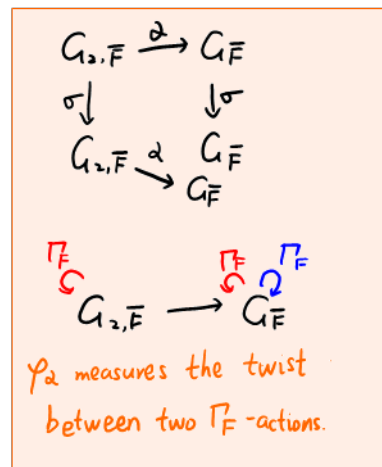 G₂,F̅ α G_F̅
σ σ
G₂,F̅ α G_F̅
G_F̅
Γ_F Γ_F Γ_F
G₂,F̅ → G_F̅
φ₂ measures the twist
between two Γ_F-actions.